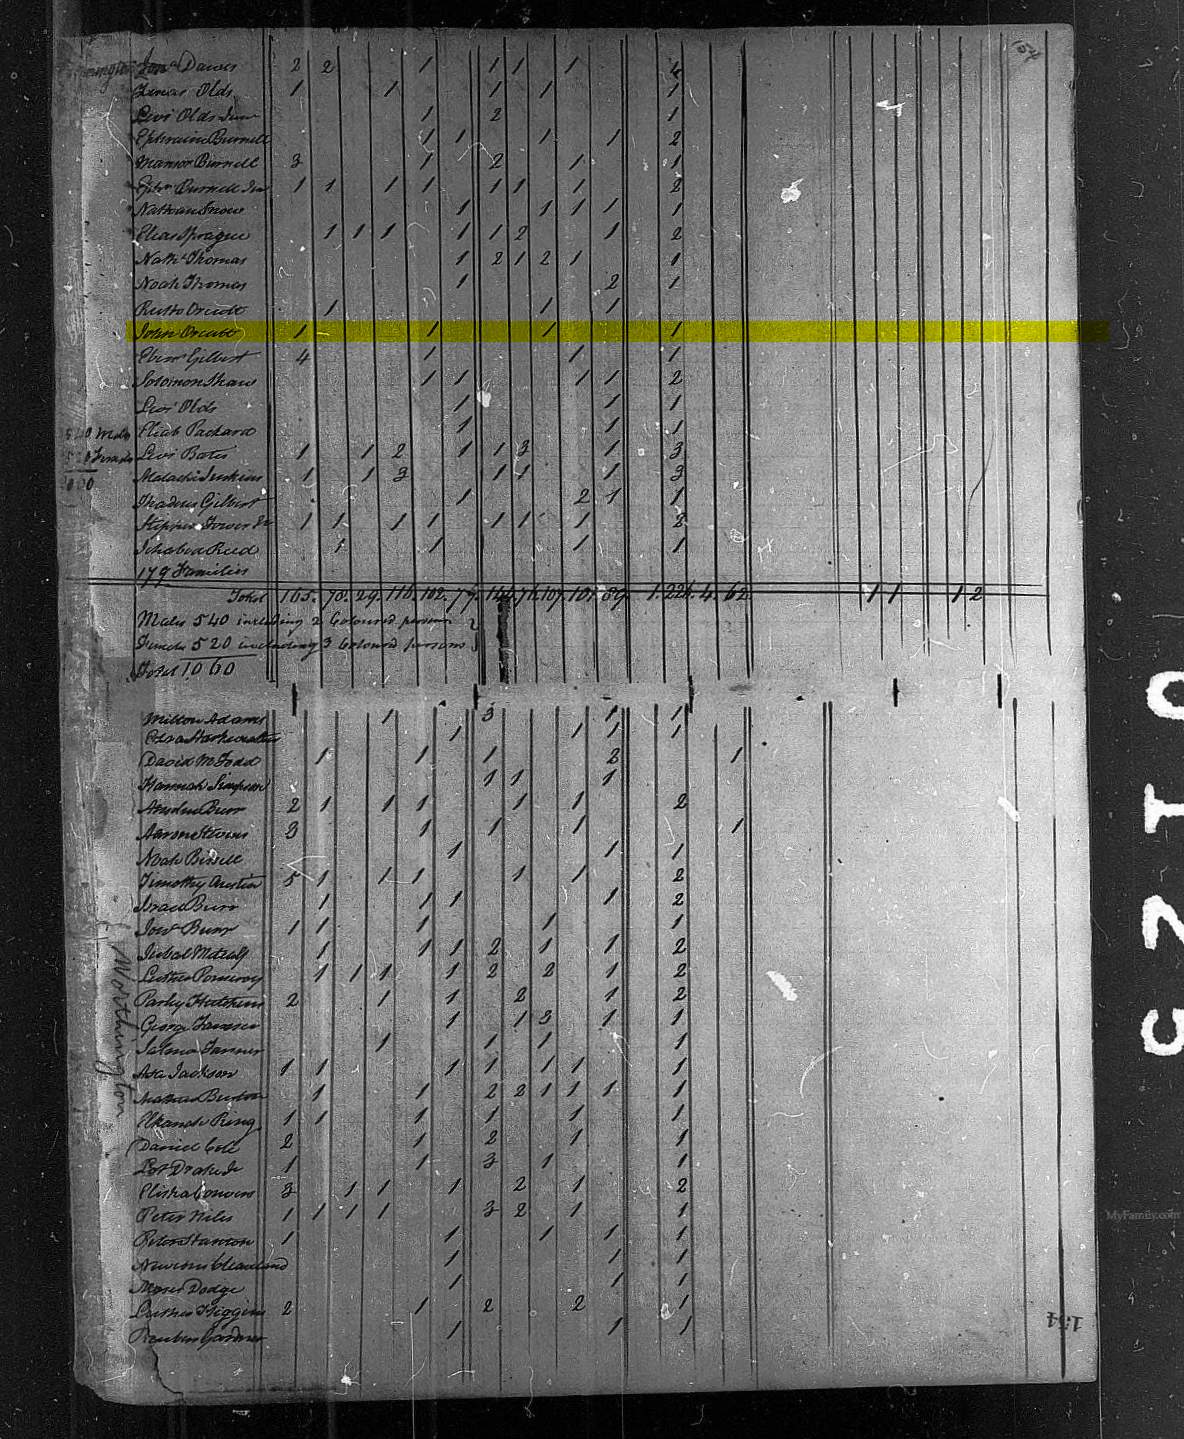 Dawes 2 2 1 1 1 1 4
Olds 1 1 1 1 1
Levi Olds Junr 1 2 1
Ephraim Burnell 1 1 1 1 2
Burnell 3 1 2 1 1
Ephm Burnell Jnr 1 1 1 1 1 1 1 2
Nathan Snow 1 1 1 1 1
Elias Sprague 1 1 1 1 1 2 1 2
Nathl Thomas 1 2 1 2 1 1
Noah Thomas 1 2 1
Orcutt 1 1 1
John Orcutt 1 1 1 1
Ebenr Gilbert 4 1 1 1
Solomon Shaw 1 1 1 1 2
Levi Olds 1 1 1
540 Males Eliab Packard 1 1 1
520 Females Levi Bates 1 1 2 1 1 3 1 3
Malachi Jenkins 1 1 3 1 1 1 3
Thadeus Gilbert 1 2 1 1
Stephen Tower Jr 1 1 1 1 1 1 1 2
Ichabod Reed 1 1 1 1
179 Families
Total 165. 70. 29. 116. 102. 79. 107 101 89 1. 221. 4. 62 1 1 1 2
Males 540 including 2 Coloured persons
Females 520 including 3 Coloured persons
Total 1060
Milton Adams 1 3 1 1
1 1 1 1
David M Todd 1 1 1 2 1
Hannah Simpson 1 1 1
Burr 2 1 1 1 1 1 2
Aaron Stevens 3 1 1 1 1
Noah Bissell 1 1 1
Timothy Austin 5 1 1 1 1 1 2
Israel Burr 1 1 1 1 2
Jonn Burr 1 1 1 1 1
Jubal Metcalf 1 1 1 2 1 1 2
Luther Pomeroy 1 1 1 1 2 2 1 2
Parley Hutchins 2 1 1 2 1 2
George 1 1 3 1 1
1 1 1 1
Asa Jackson 1 1 1 1 1 1 1
Burton 1 1 2 2 1 1 1 1
Elkanah Ring 1 1 1 1 1 1
Daniel Cole 2 1 2 1 1
Lot Drake Jr 1 1 3 1 1
Elisha Convers 3 1 1 1 2 1 2
Peter Niles 1 1 1 1 3 2 1 1
Stanton 1 1 1 1 1
Cleaveland 1 1 1
Moses Dodge 1 1 1
Luther Higgins 2 1 2 2 1
Reuben Gardner 1 1 1
Worthington
MyFamily.com